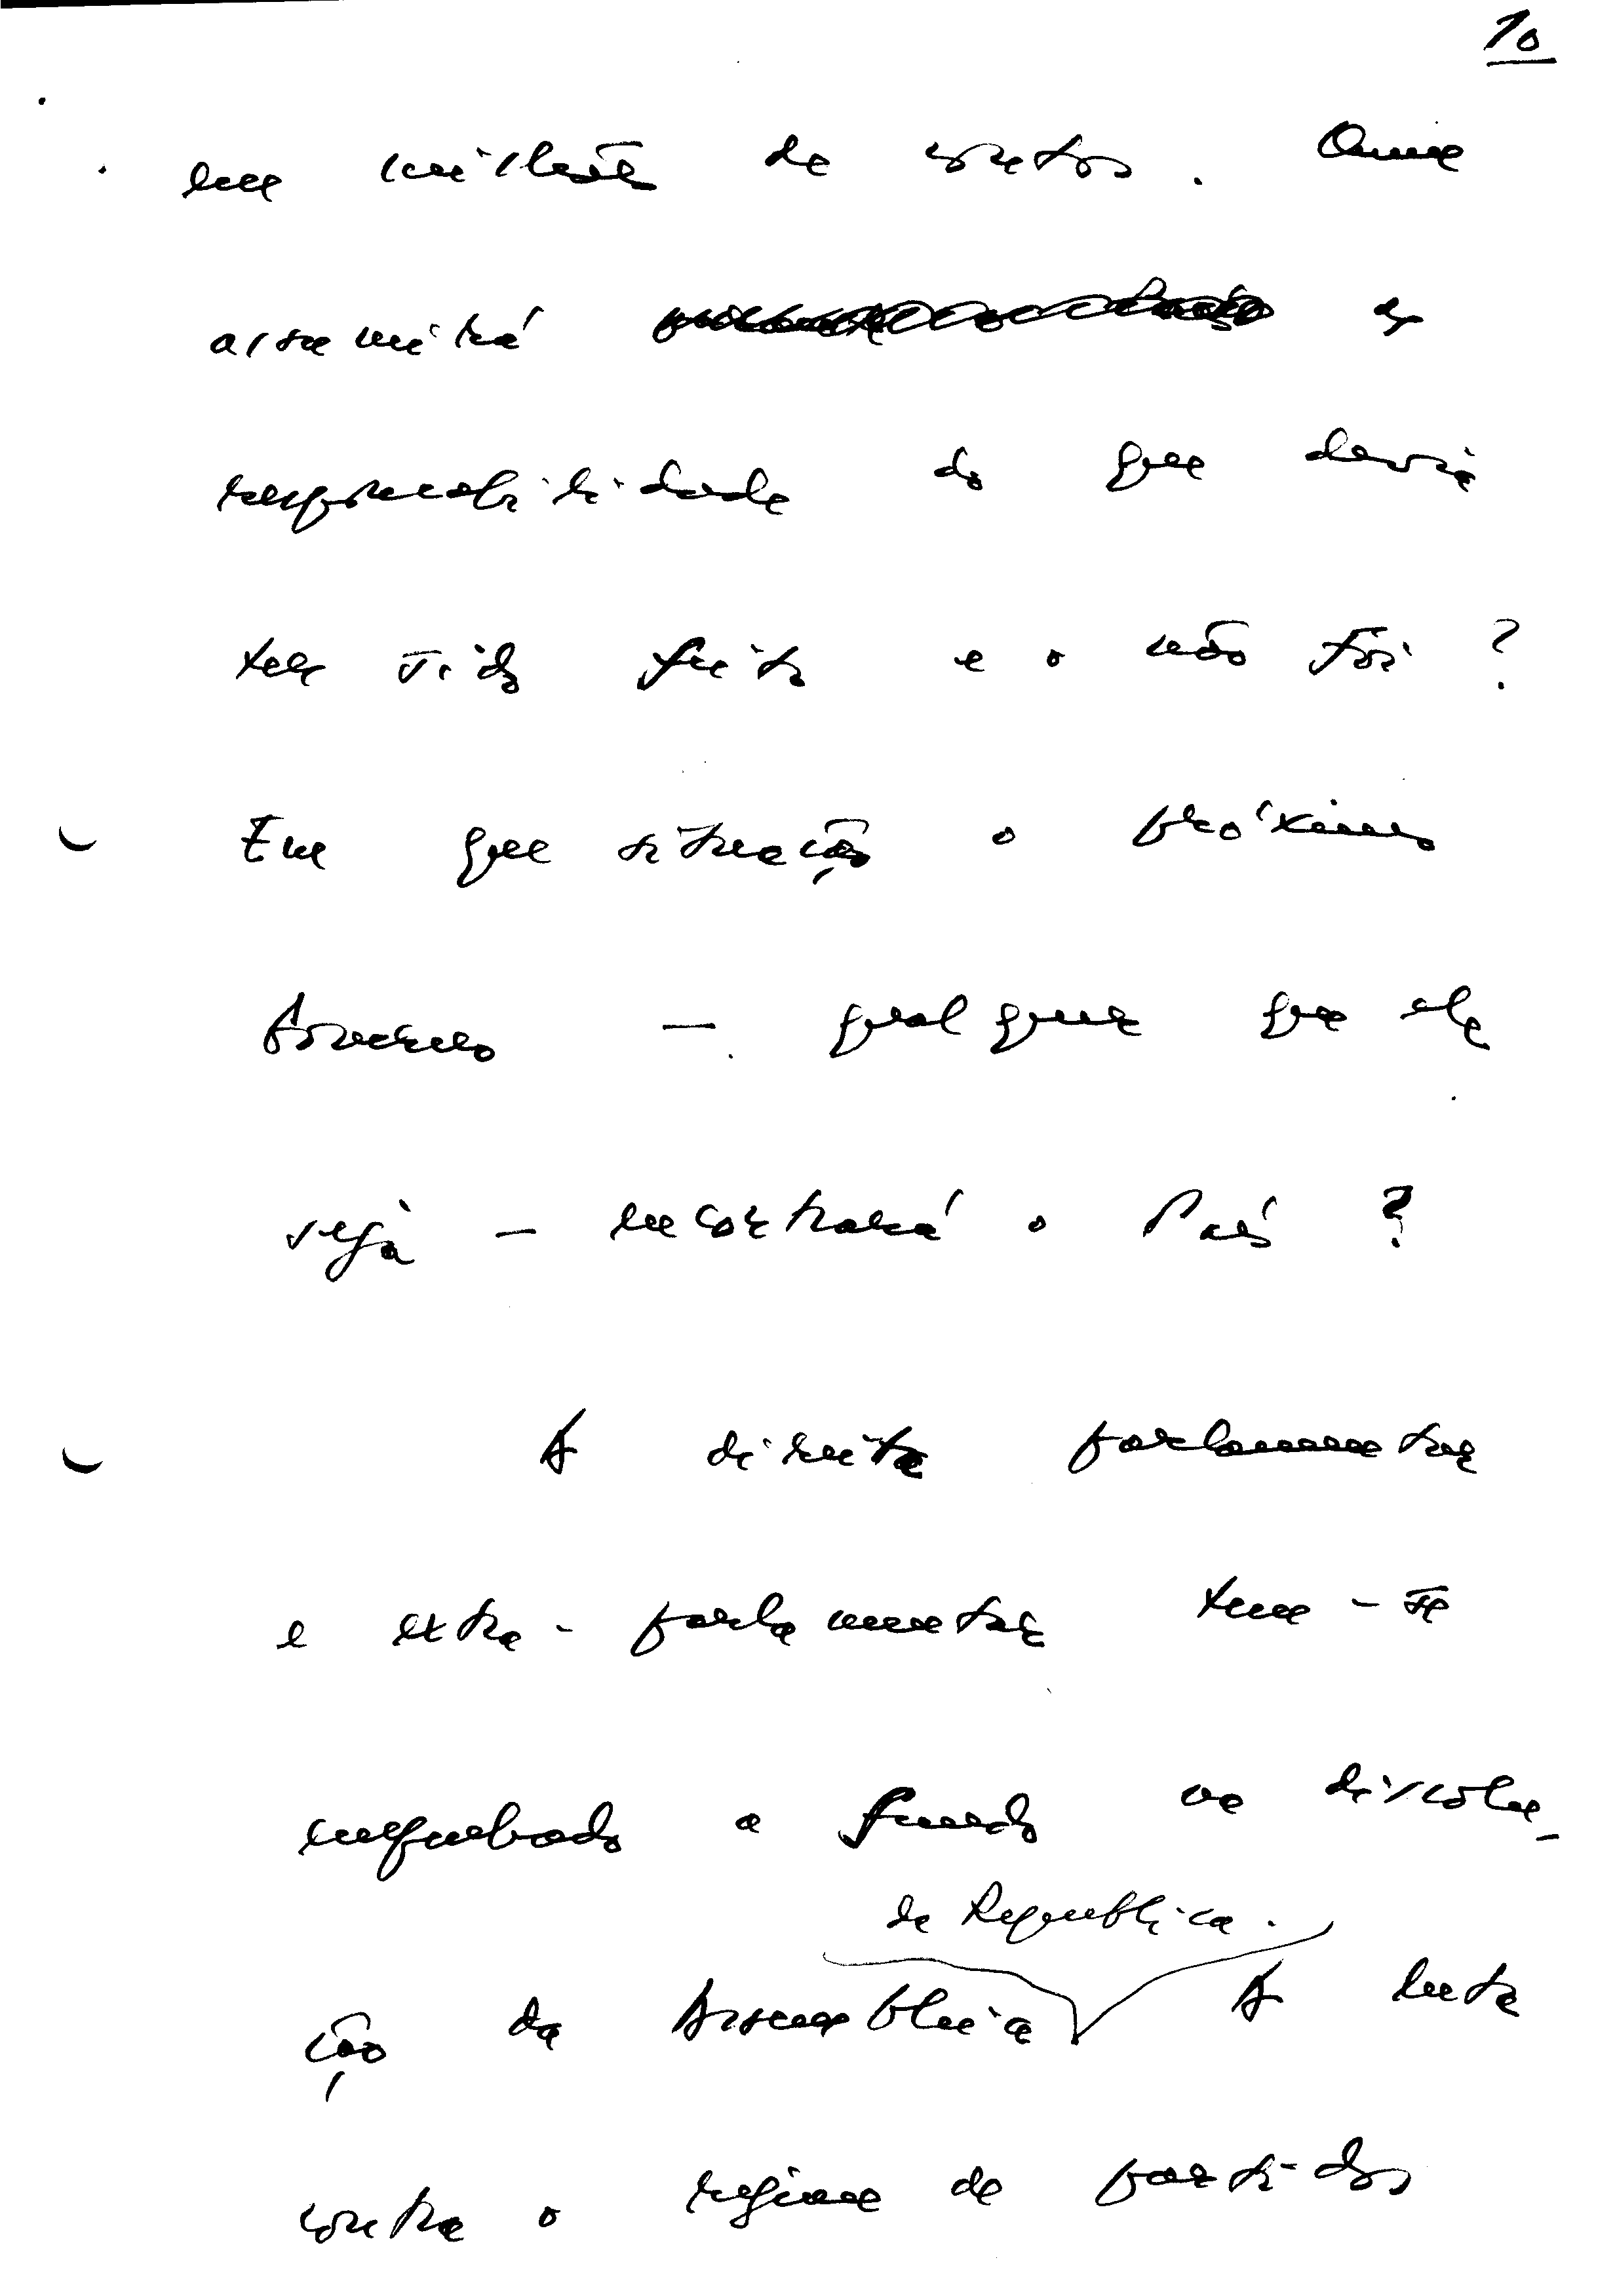 10
em milhões de contos. Quem
assumirá a
responsabilidade do que devia
ter sido feito e o não foi?
Em que situação o próximo
Governo — qualquer que ele
seja — encontrará o País?
A direita parlamentar
e extra-parlamentar tem-se
empenhado a fundo na dissolu-
da República.
ção da Assembleia A luta
contra o regime de partidos